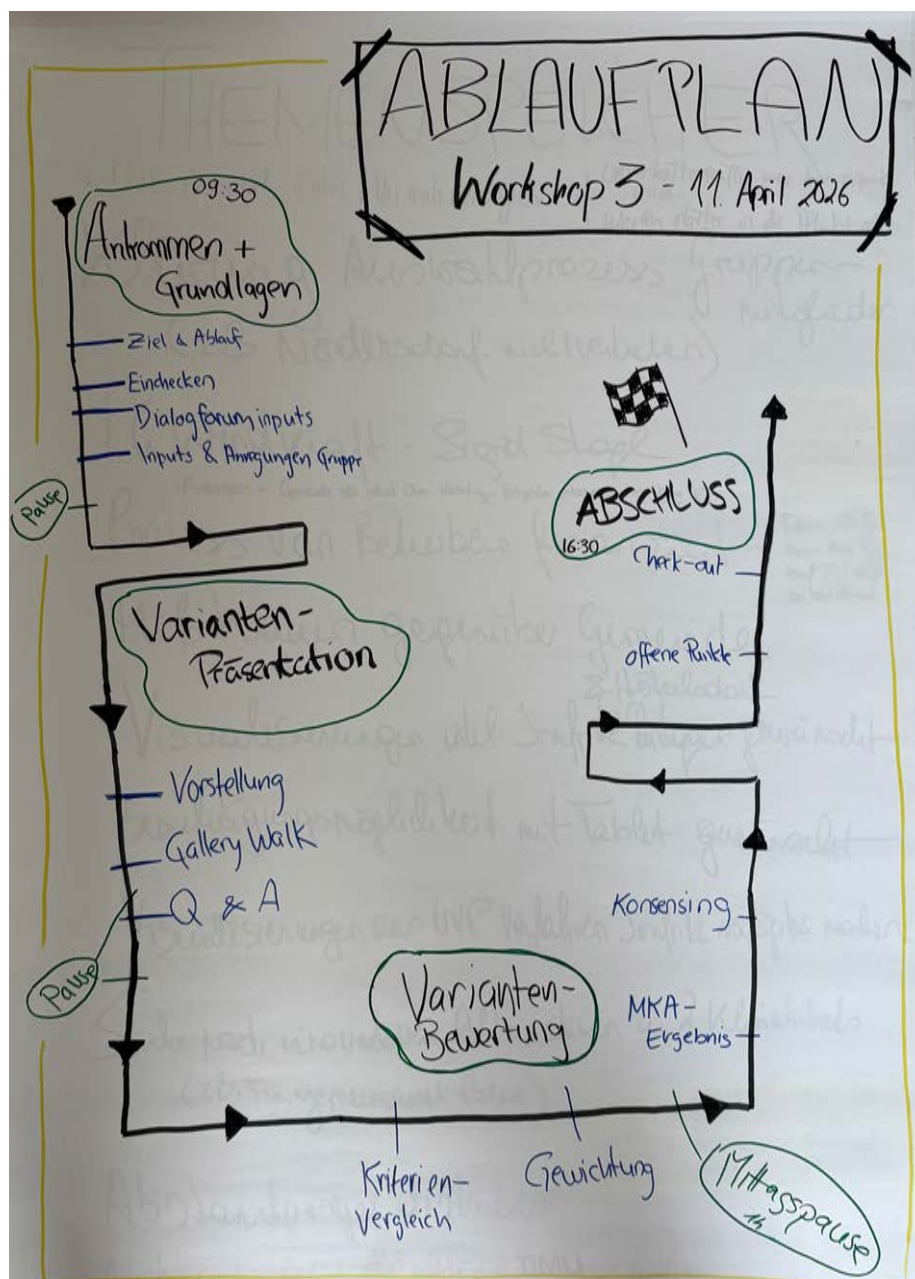 ABLAUFPLAN
Workshop 3 - 11. April 2026
09:30
Ankommen +
Grundlagen
Ziel & Ablauf
Einchecken
Dialogforum inputs
Inputs & Anregungen Gruppe
Pause
Varianten-
Präsentation
Vorstellung
Gallery Walk
Q & A
Pause
Varianten-
Bewertung
Kriterien-
vergleich
Gewichtung
Mittagspause
1h
MKA-
Ergebnis
Konsensing
offene Punkte
Check-out
ABSCHLUSS
16:30